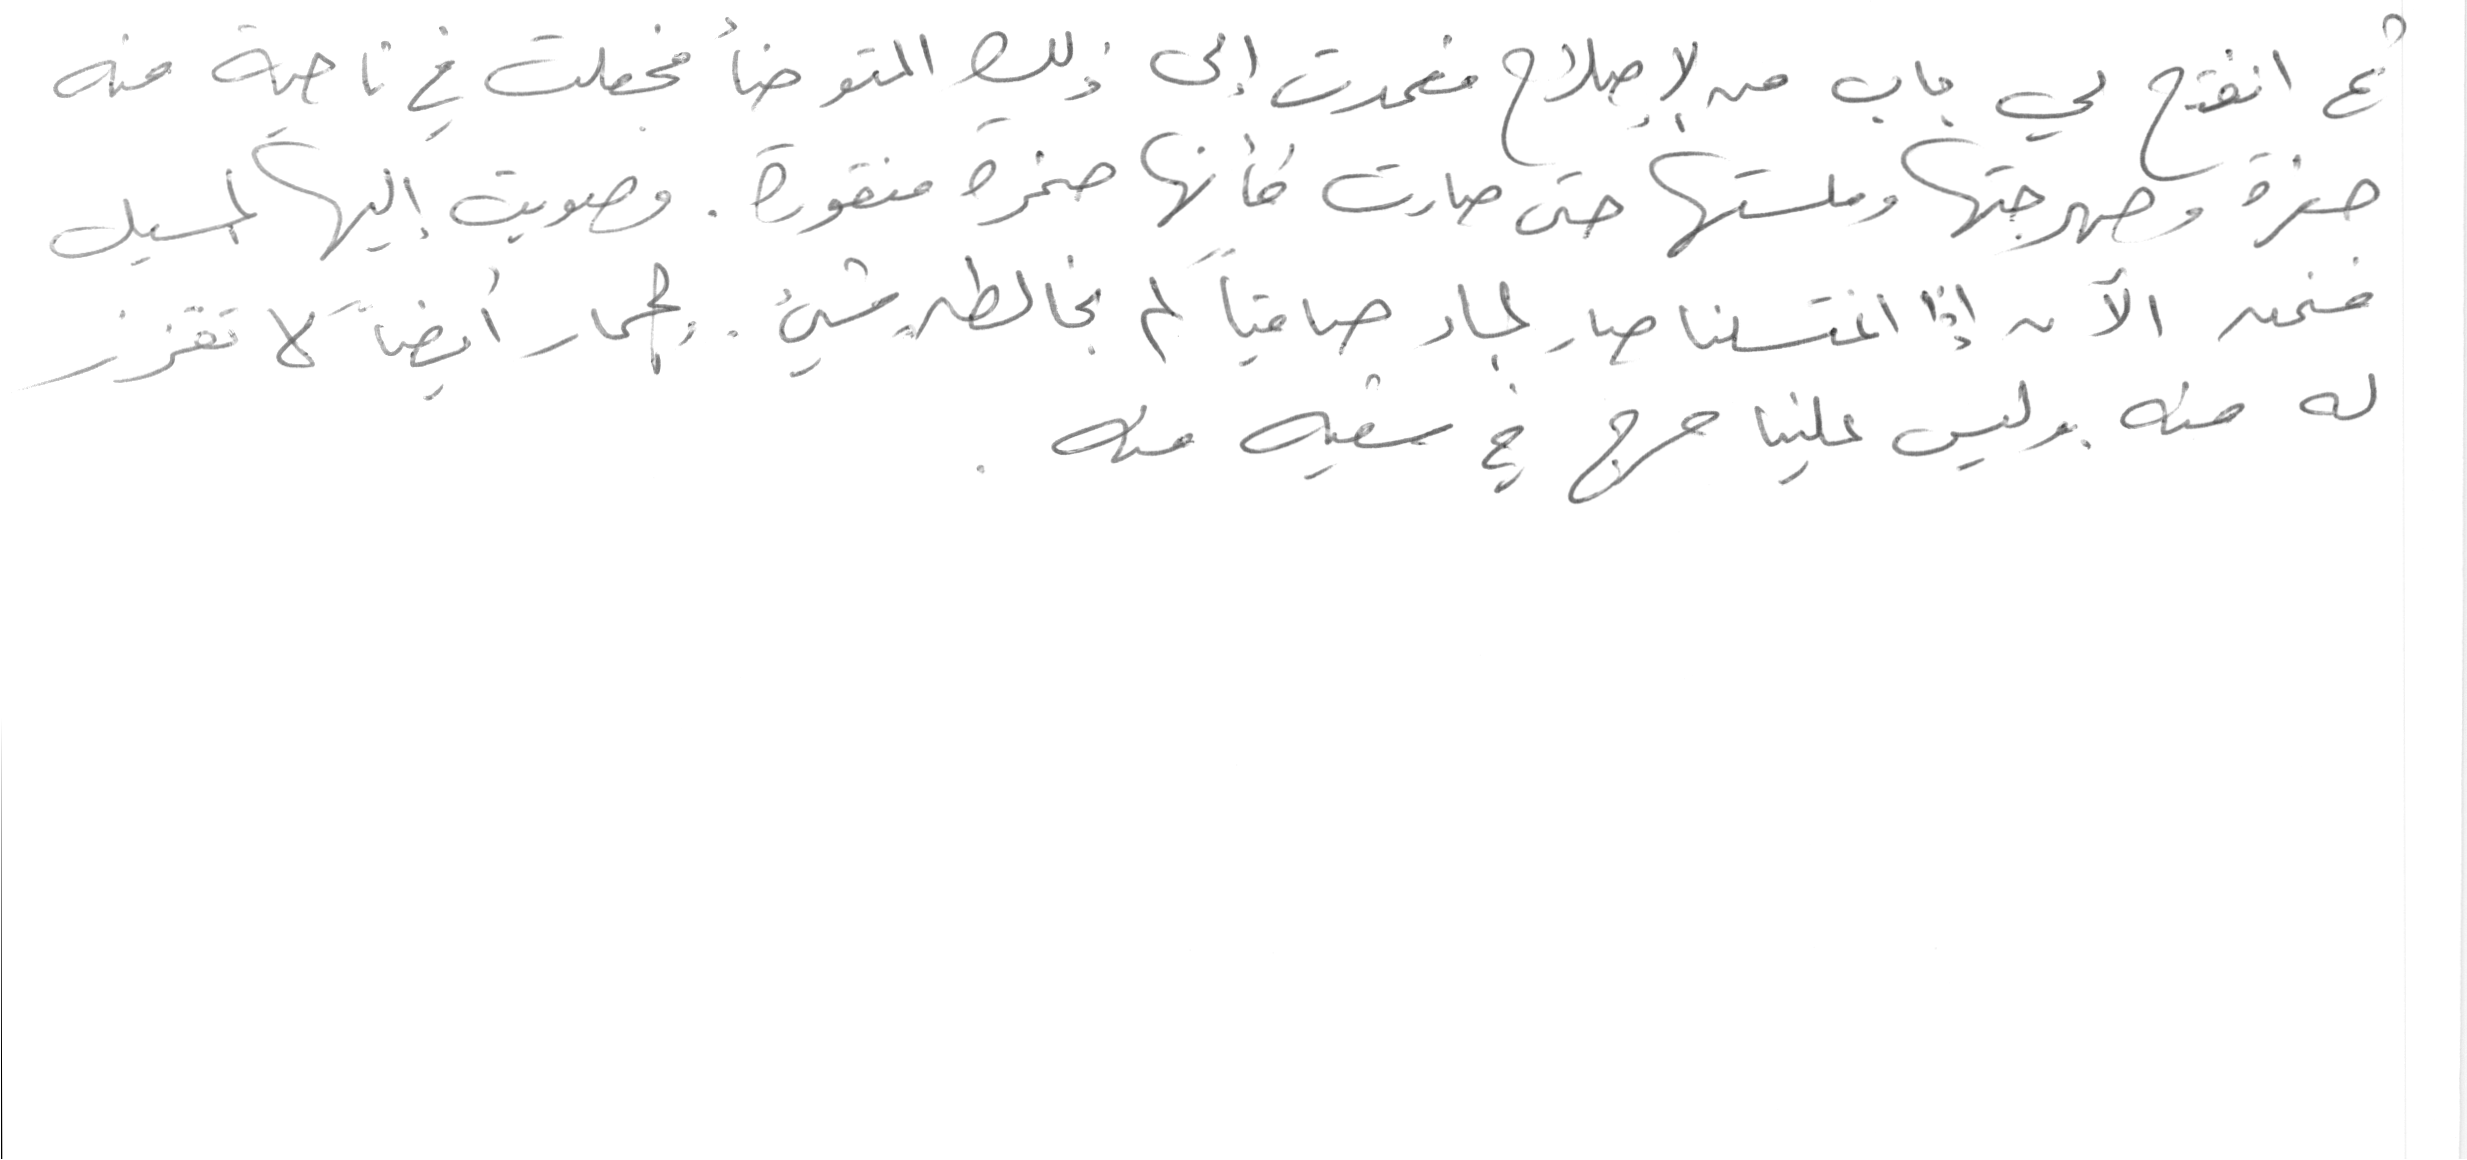 ثم انفتح لي باب من الإصلاح فعمدت إلى ذلك المتوضأ فجعلت في ناحية منه
حفرة وصهرجتها وملستها حتى صارت كأنها صخرة منقورة . وصوبت إليها المسيل
فنحن الآن إذا اغتسلنا صار الماء صافياً لم يخالطه شيء . والحمار أيضاً لا تقزز
له منه . وليس علينا حرج في سقيه منه .